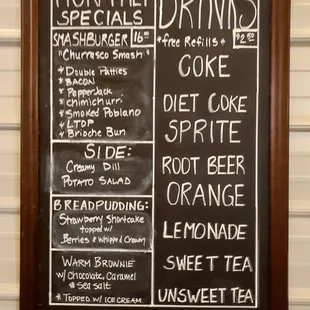 MONTHLY
SPECIALS
SMASHBURGER 16.00
"Churrasco Smash"
* Double Patties
* BACON
* PepperJack
* chimichurri
* Smoked Poblano
* LTOP
* Brioche Bun
SIDE:
Creamy Dill
POTATO SALAD
BREADPUDDING:
Strawberry Shortcake
topped w/
Berries & Whipped Cream
WARM BROWNIE
w/ Chocolate, Caramel
& Sea Salt
* TOPPED W/ ICE CREAM
DRINKS
*free Refills* $2.50
COKE
DIET COKE
SPRITE
ROOT BEER
ORANGE
LEMONADE
SWEET TEA
UNSWEET TEA